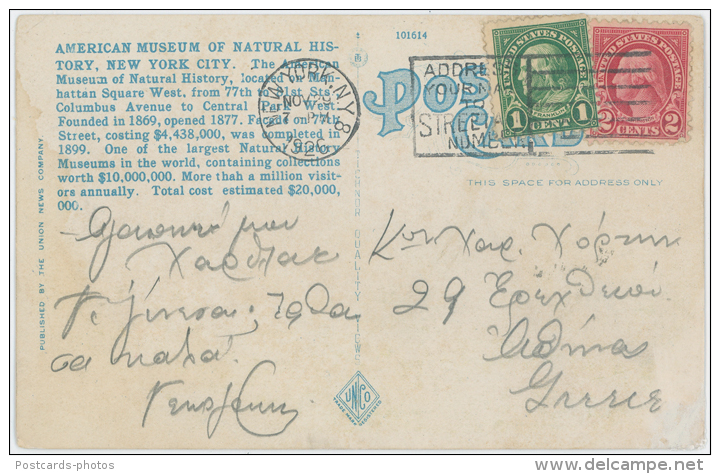 101614
AMERICAN MUSEUM OF NATURAL HIS-
TORY, NEW YORK CITY. The American
Museum of Natural History, located on Man-
hattan Square West, from 77th to 81st Sts.,
Columbus Avenue to Central Park West.
Founded in 1869, opened 1877. Facing on 77th
Street, costing $4,438,000, was completed in
1899. One of the largest Natural History
Museums in the world, containing collections
worth $10,000,000. More than a million visit-
ors annually. Total cost estimated $20,000,
000.
PUBLISHED BY THE UNION NEWS COMPANY
NEW YORK, N.Y. 8
NOV
7 PM
POST
CARD
ADDRESS
YOUR MAIL
TO
STREET
NUMBER
UNITED STATES POSTAGE
FRANKLIN
1 CENT 1
UNITED STATES POSTAGE
2 CENTS 2
THIS SPACE FOR ADDRESS ONLY
QUALITY VIEWS
Αγαπητέ μου
Χαρίλαε
Τι γίνεσαι; Ήρθα
Κον Χαρ.
29 Ερεχθείου
Αθήνας
Greece
UNCO
TRADE MARK REGISTERED
Postcards-photos
www.delcampe.net